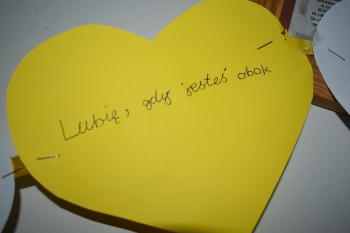 Lubię, gdy jesteś obok